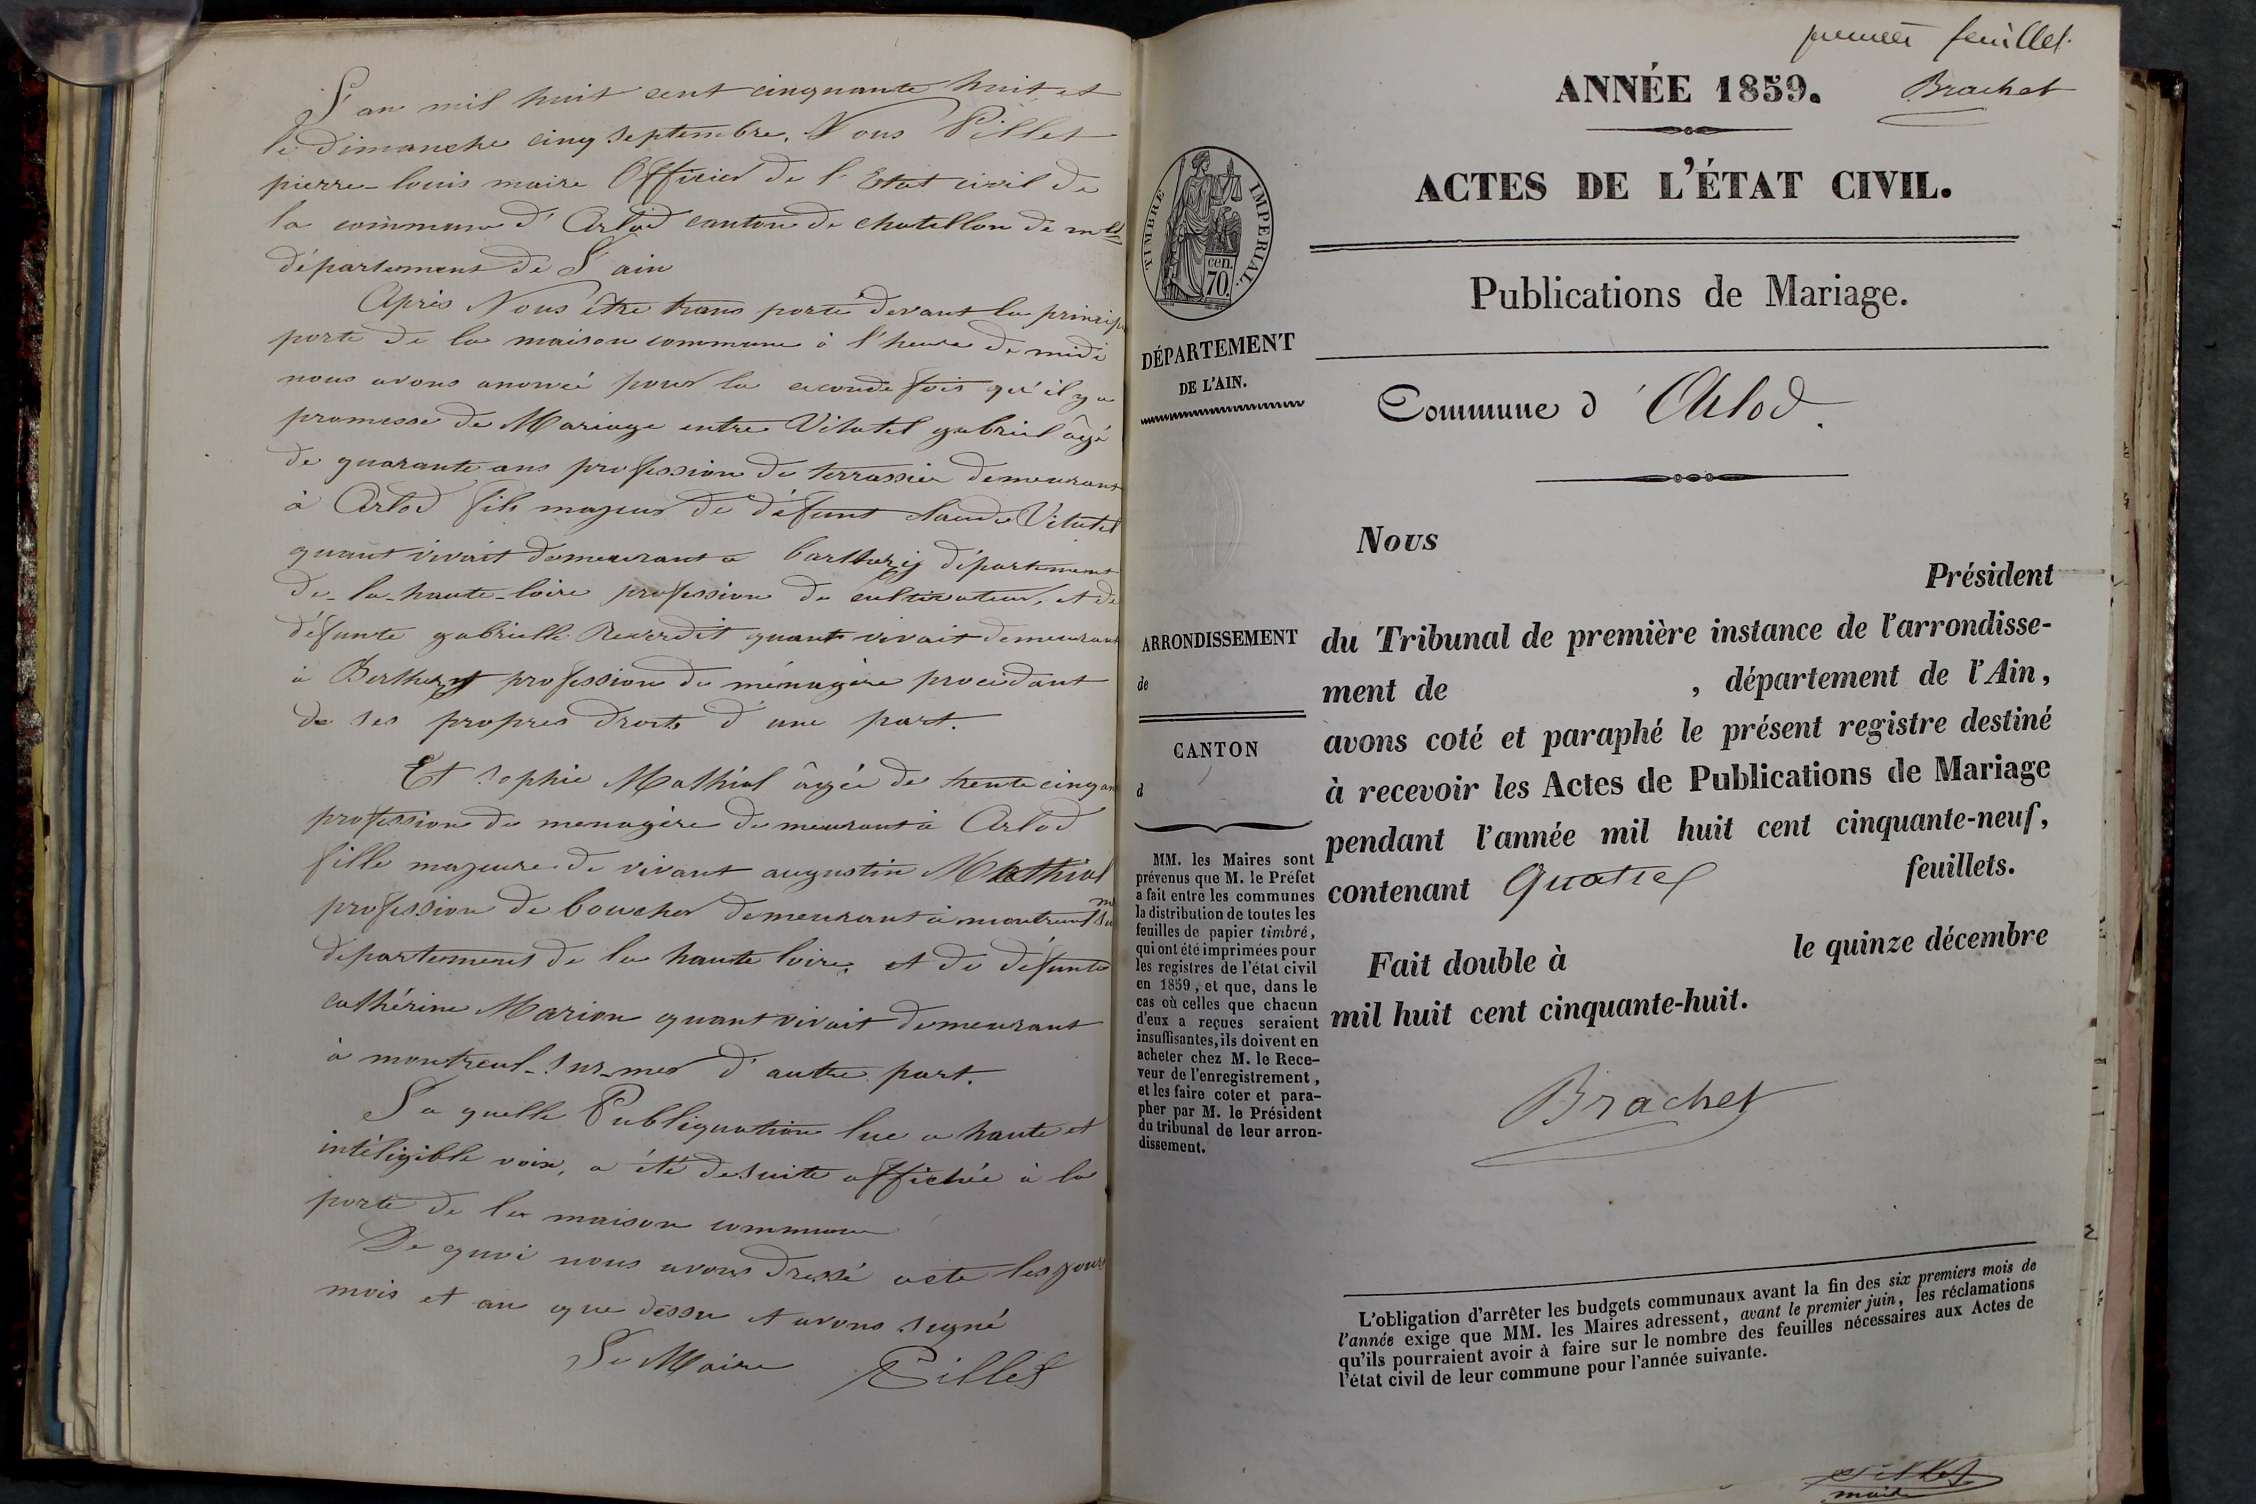 L'an mil huit cent cinquante huit et
le dimanche cinq septembre, Nous Pillet
pierre-louis maire Officier de l'Etat civil de
la commune d'Arlod canton de chatillon de mlle
département de L'ain
Après Nous être trans porté devant la princip
porte de la maison commune à l'heure de midi
nous avons anoncé pour la seconde fois qu'il y a
promesse de Mariage entre Vitatel gabriel âgé
de quarante ans profession de terrassier demeurant
à Arlod fils majeur de défunt claude Vitatel
quant vivait demeurant a département
de-la-haute-loire profession de cultivateur, et de
défunte gabrielle Reverdit quant vivait demeurant
à profession de ménagère procédant
de ses propres droits d'une part.
Et Sophie Mathial âgée de trente cinq ans
profession de menagère demeurant à Arlod
fille majeure de vivant augustin Mathial
profession de boucher demeurant à montreul
département de la haute loire, et de défunte
cathérine Marion quant vivait demeurant
à montreul-sur-mer d'autre part.
La quelle Publiquation lue a haute et
intéligible voix, a été desuite affichée à la
porte de la maison commune
De quoi nous avons dressé acte les jour
mois et an que dessu et avons signé
Le Maire Pillet
premier feuillet.
Brachet
ANNÉE 1859.
ACTES DE L'ÉTAT CIVIL.
Publications de Mariage.
TIMBRE IMPERIAL.
cen.
70.
DÉPARTEMENT
DE L'AIN.
Commune d'Arlod.
ARRONDISSEMENT
de
CANTON
d
MM. les Maires sont
prévenus que M. le Préfet
a fait entre les communes
la distribution de toutes les
feuilles de papier timbré,
qui ont été imprimées pour
les registres de l'état civil
en 1859, et que, dans le
cas où celles que chacun
d'eux a reçues seraient
insuffisantes, ils doivent en
acheter chez M. le Rece-
veur de l'enregistrement,
et les faire coter et para-
pher par M. le Président
du tribunal de leur arron-
dissement.
Nous
Président
du Tribunal de première instance de l'arrondisse-
ment de , département de l'Ain,
avons coté et paraphé le présent registre destiné
à recevoir les Actes de Publications de Mariage
pendant l'année mil huit cent cinquante-neuf,
contenant Quatre feuillets.
Fait double à le quinze décembre
mil huit cent cinquante-huit.
Brachet
L'obligation d'arrêter les budgets communaux avant la fin des six premiers mois de
l'année exige que MM. les Maires adressent, avant le premier juin, les réclamations
qu'ils pourraient avoir à faire sur le nombre des feuilles nécessaires aux Actes de
l'état civil de leur commune pour l'année suivante.
Pillet
maire